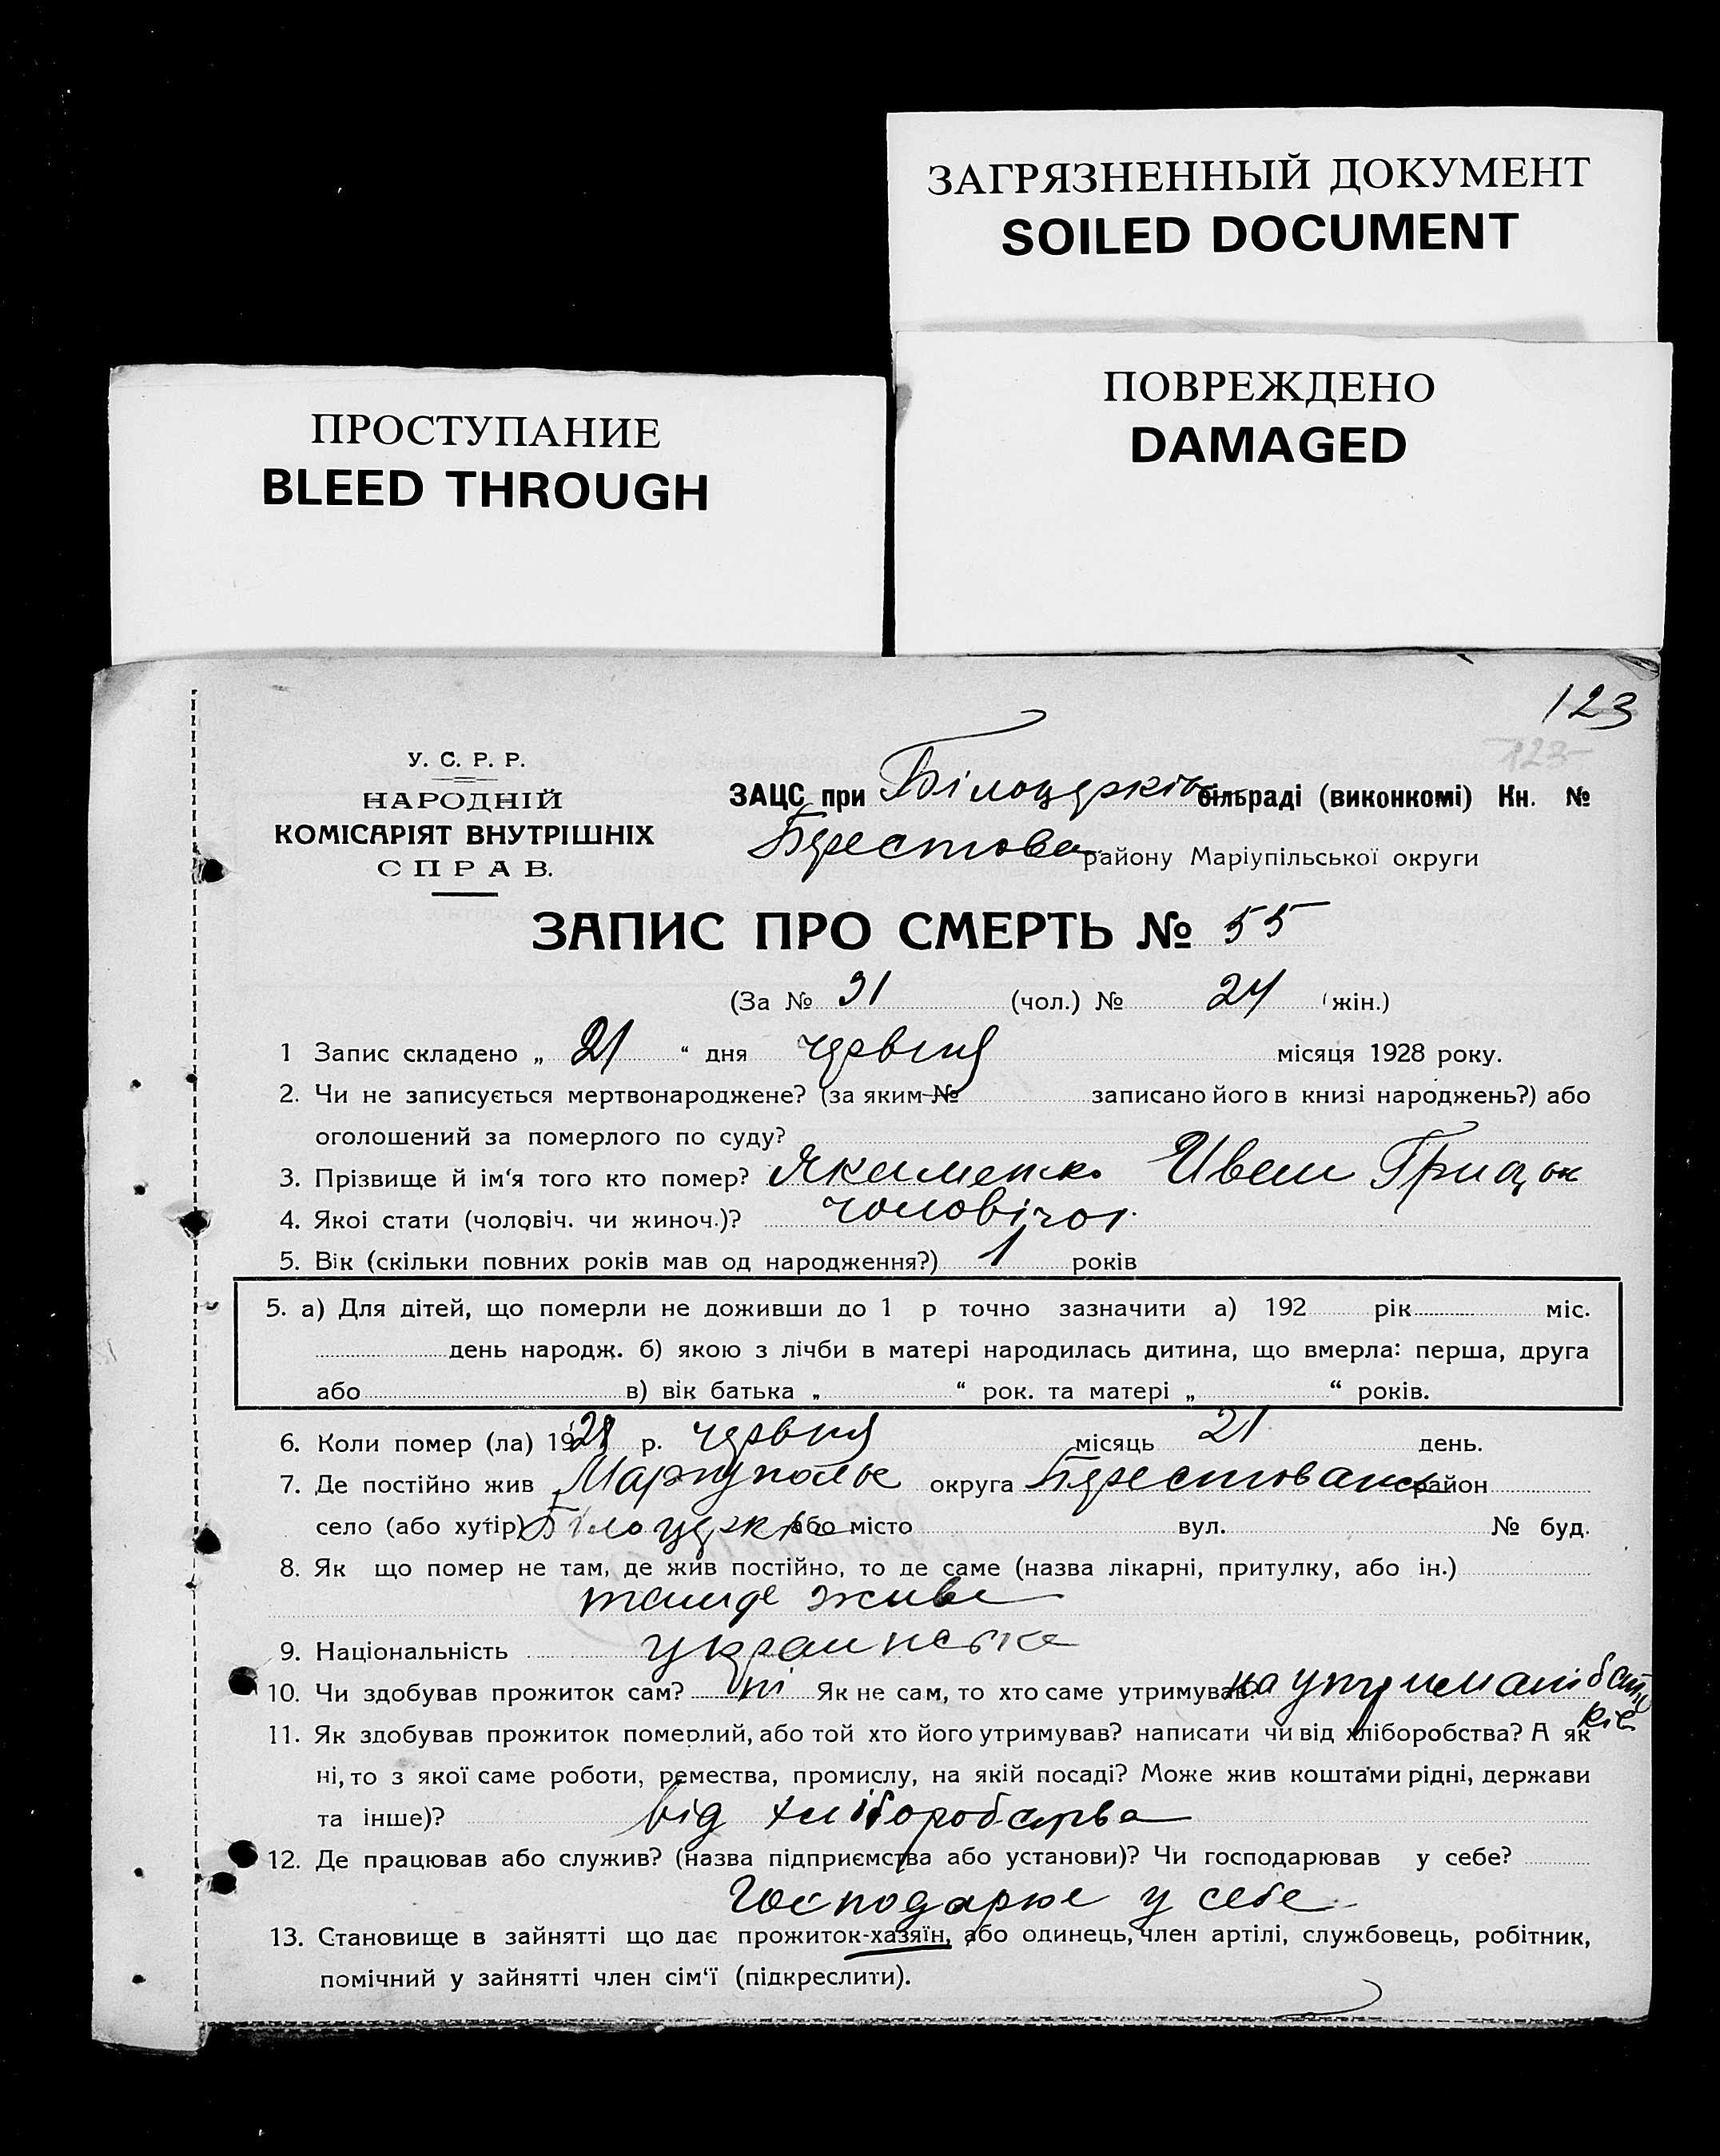 ЗАГРЯЗНЕННЫЙ ДОКУМЕНТ
SOILED DOCUMENT
ПРОСТУПАНИЕ
BLEED THROUGH
ПОВРЕЖДЕНО
DAMAGED
123
123
У. С. Р. Р.
НАРОДНІЙ
КОМІСАРІЯТ ВНУТРІШНІХ
СПРАВ.
ЗАЦС при Білоцерків сільраді (виконкомі) Кн. №
Берестове району Маріупільської округи
ЗАПИС ПРО СМЕРТЬ № 55
(За № 31 (чол.) № 24 (жін.)
1 Запис складено „ 21 “ дня червня місяця 1928 року.
2. Чи не записується мертвонароджене? (за яким № записано його в книзі народжень?) або
оголошений за померлого по суду?
3. Прізвище й ім‘я того кто помер? Якименко Иван Грицьк
4. Якоі стати (чоловіч. чи жиноч.)? чоловічої
5. Вік (скільки повних років мав од народження?) 1 років
5. а) Для дітей, що померли не доживши до 1 р точно зазначити а) 192 рік міс.
день народж. б) якою з лічби в матері народилась дитина, що вмерла: перша, друга
або в) вік батька „ “ рок. та матері „ “ років.
6. Коли помер (ла) 1928 р. червня місяць 21 день.
7. Де постійно жив Мариупольс округа Берестованськ район
село (або хутір) Білоцерків або місто вул. № буд.
8. Як що помер не там, де жив постійно, то де саме (назва лікарні, притулку, або ін.)
тамде живе
9. Національність украинська
10. Чи здобував прожиток сам? ні Як не сам, то хто саме утримував? на утримані батьків
11. Як здобував прожиток померлий, або той хто його утримував? написати чи від хліборобства? А як
ні, то з якої саме роботи, ремества, промислу, на якій посаді? Може жив коштами рідні, держави
та інше)? від хліборобства
12. Де працював або служив? (назва підприємства або установи)? Чи господарював у себе?
Господарює у себе
13. Становище в зайнятті що дає прожиток-хазяїн, або одинець, член артілі, службовець, робітник,
помічний у зайнятті член сім‘ї (підкреслити).